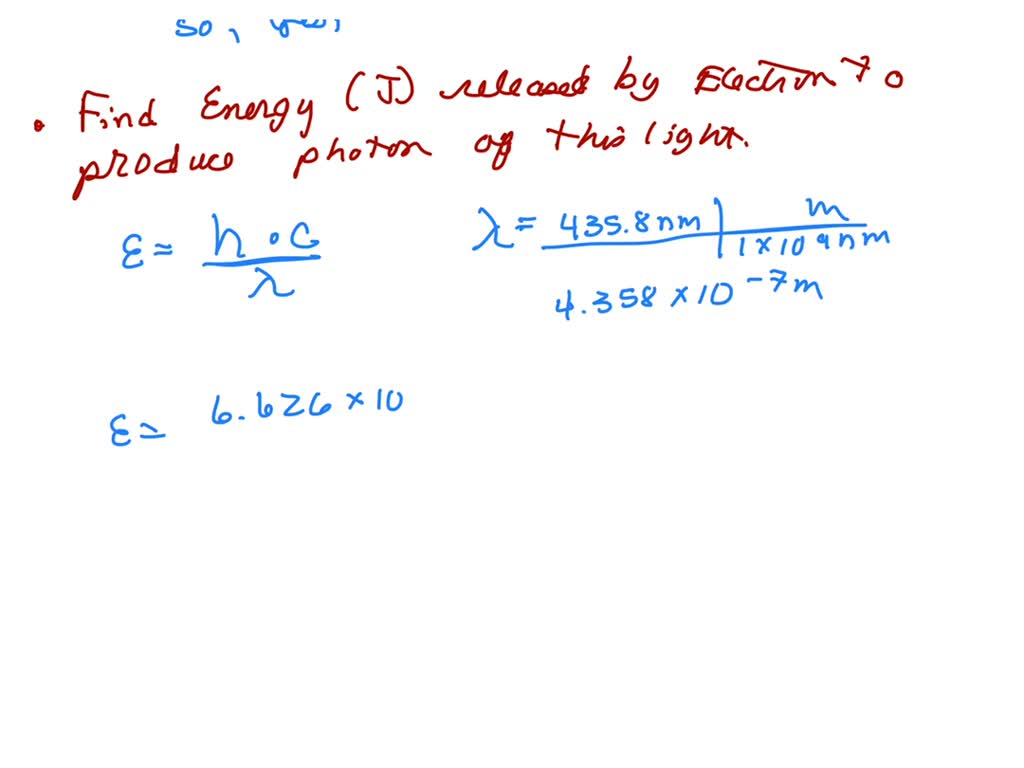 so,
• Find Energy (J) released by Electron to
produce photon of this light.
ε = h • c / λ
λ = 435.8 nm | m / 1 × 10⁹ nm
4.358 × 10⁻⁷ m
ε = 6.626 × 10